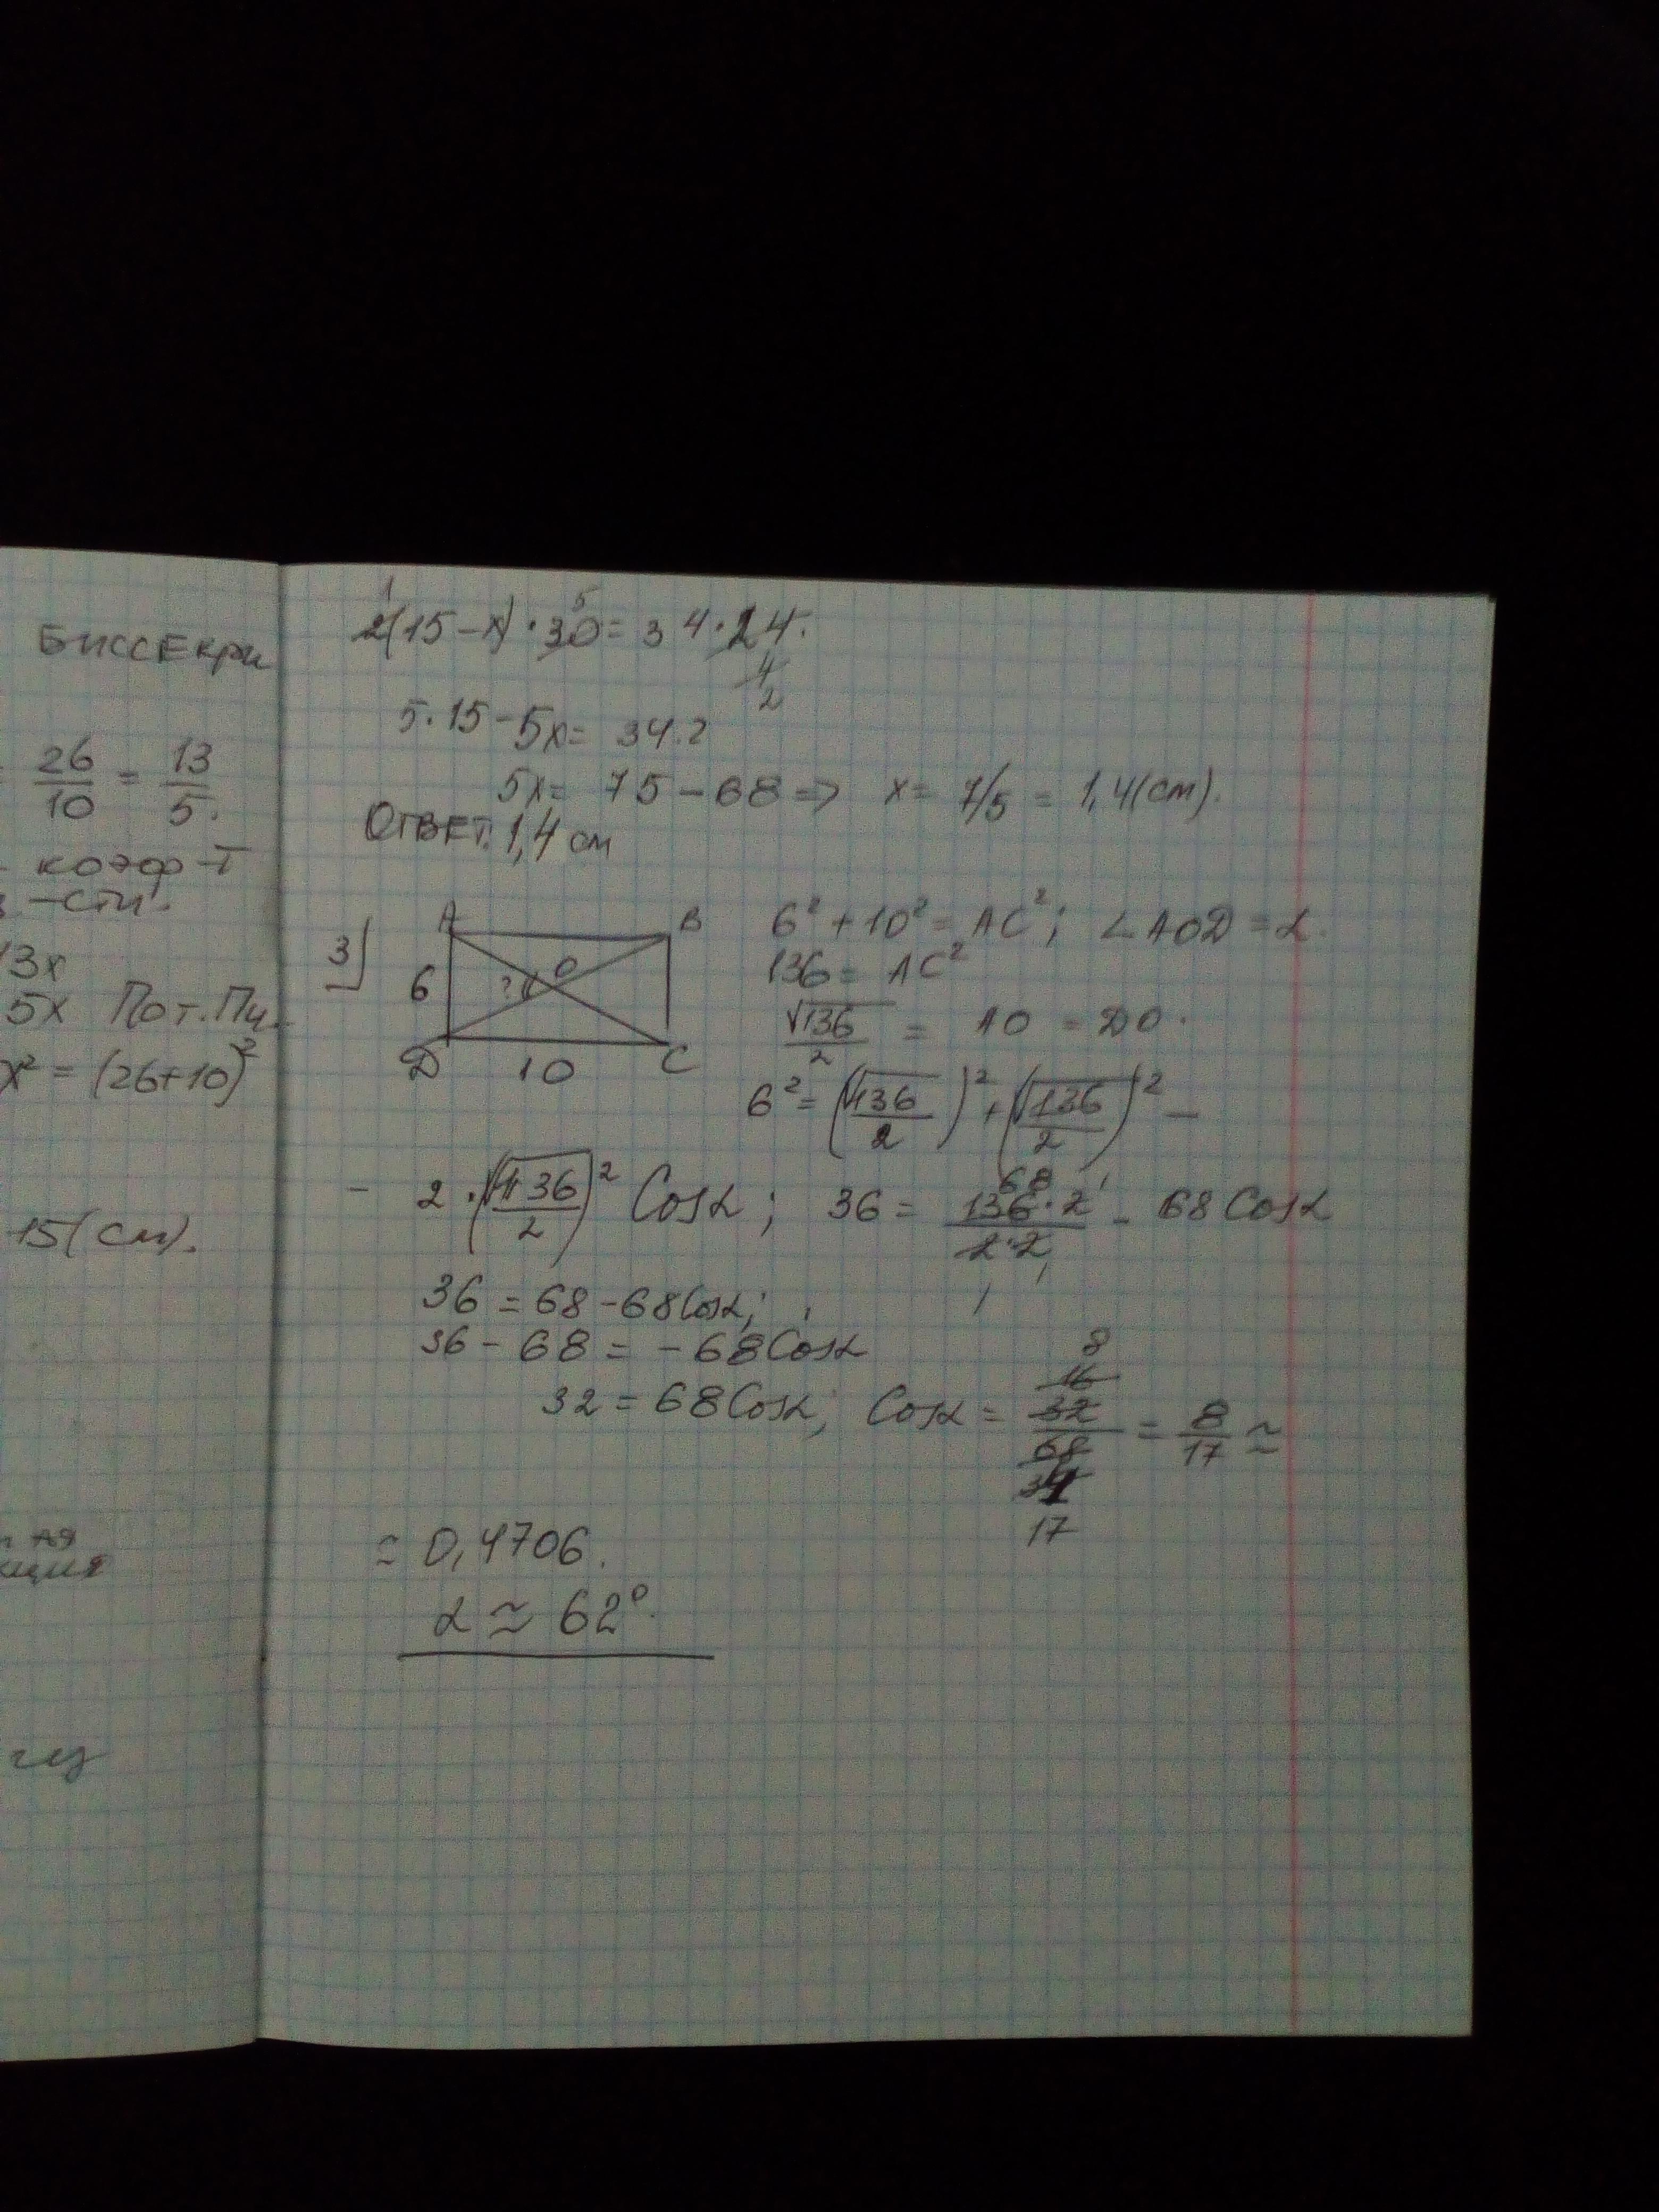 БИССЕКтри
= 26/10 = 13/5.
коэф-т
-сти.
13x
5x По т. Пи
x² = (26+10)²
15(см).
ция
2(15-x)·30 = 34·24.
1
5
4
2
5·15-5x = 34.2
5x = 75-68 => x = 7/5 = 1,4(см).
ОТВЕТ: 1,4 см
3
A B
6 ? O
D 10 C
6² + 10² = AC²; ∠AOD = α.
136 = AC²
√136/2 = AO = DO.
6² = (√136/2)² + (√136/2)² -
- 2·(√136/2)² Cosα; 36 = 136·2/2·2 - 68 Cosα
68 1
1 1
36 = 68-68Cosα;
36 - 68 = -68Cosα
32 = 68Cosα; Cosα = 32/68 = 8/17 ≃
8
16
34
17
≃ 0,4706.
α ≃ 62°.